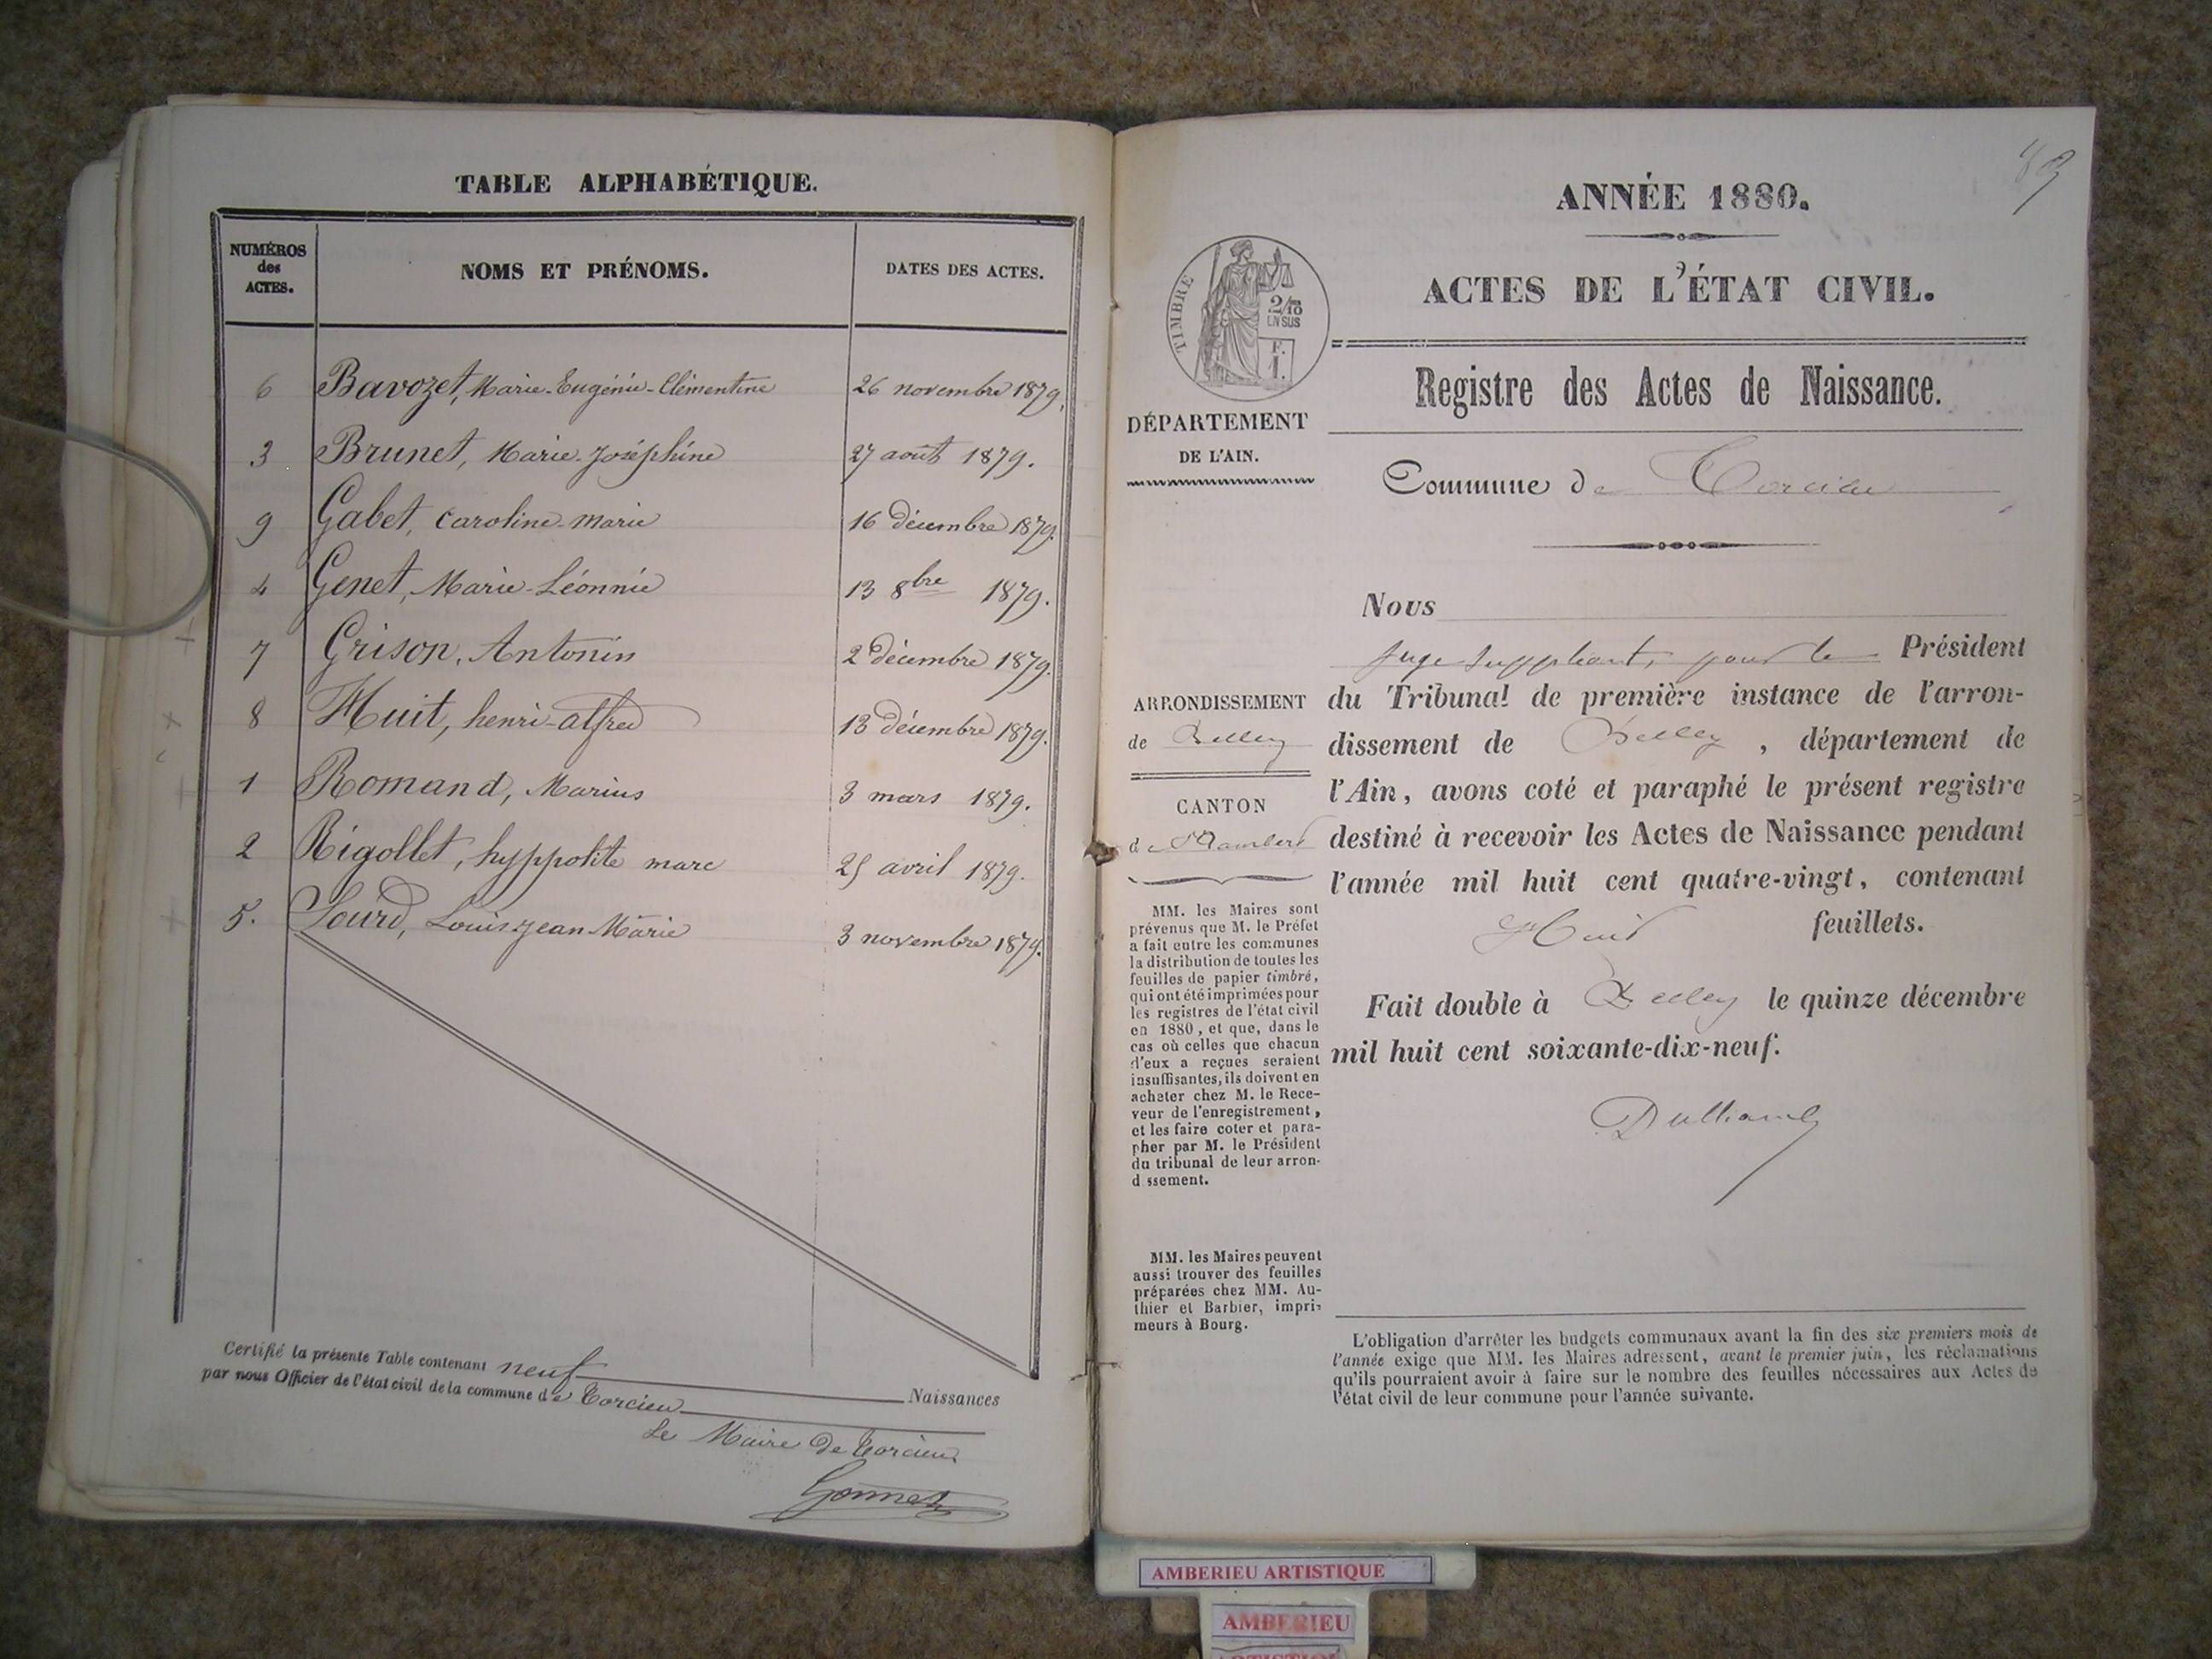 TABLE ALPHABÉTIQUE.
NUMÉROS
des
ACTES.
NOMS ET PRÉNOMS.
DATES DES ACTES.
6 Bavozet, Marie-Eugénie-Clémentine 26 novembre 1879.
3 Brunet, Marie-Joséphine 27 août 1879.
9 Gabet, Caroline-marie 16 décembre 1879.
4 Genet, Marie-Léonnie 13 8bre 1879.
7 Grison, Antonin 2 décembre 1879.
8 Huit, henri-alfred 13 décembre 1879.
1 Romand, Marius 3 mars 1879.
2 Rigollet, hyppolite marc 25 avril 1879.
5. Sourd, Louis-jean-Marie 3 novembre 1879.
Certifié la présente Table contenant neuf Naissances
par nous Officier de l'état civil de la commune de Torcieu
Le Maire de Torcieu
Gonnet
ANNÉE 1880.
ACTES DE L'ÉTAT CIVIL.
TIMBRE
2/10
EN SUS
F.
1.
DÉPARTEMENT
DE L'AIN.
Registre des Actes de Naissance.
Commune de Torcieu
Nous
juge suppléant, pour le Président
du Tribunal de première instance de l'arron-
dissement de Belley, département de
l'Ain, avons coté et paraphé le présent registre
destiné à recevoir les Actes de Naissance pendant
l'année mil huit cent quatre-vingt, contenant
Huit feuillets.
Fait double à Belley le quinze décembre
mil huit cent soixante-dix-neuf.
ARRONDISSEMENT
de Belley
CANTON
de St Rambert
MM. les Maires sont
prévenus que M. le Préfet
a fait entre les communes
la distribution de toutes les
feuilles de papier timbré,
qui ont été imprimées pour
les registres de l'état civil
en 1880, et que, dans le
cas où celles que chacun
d'eux a reçues seraient
insuffisantes, ils doivent en
acheter chez M. le Rece-
veur de l'enregistrement,
et les faire coter et para-
pher par M. le Président
du tribunal de leur arron-
d ssement.
MM. les Maires peuvent
aussi trouver des feuilles
préparées chez MM. Au-
thier et Barbier, impri-
meurs à Bourg.
L'obligation d'arrêter les budgets communaux avant la fin des six premiers mois de
l'année exige que MM. les Maires adressent, avant le premier juin, les réclamations
qu'ils pourraient avoir à faire sur le nombre des feuilles nécessaires aux Actes de
l'état civil de leur commune pour l'année suivante.
AMBERIEU ARTISTIQUE
AMBERIEU
ARTISTIQUE